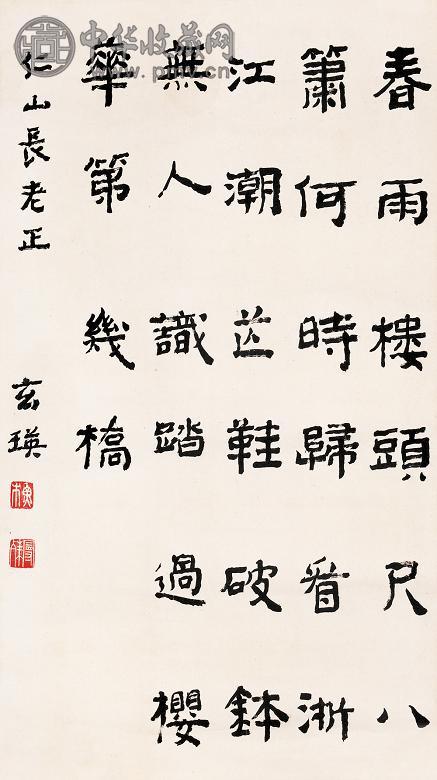 春雨樓頭尺八
簫何時歸看浙
江潮芒鞋破鉢
無人識踏過櫻
華第幾橋
仁山長老正
玄瑛
中华收藏网